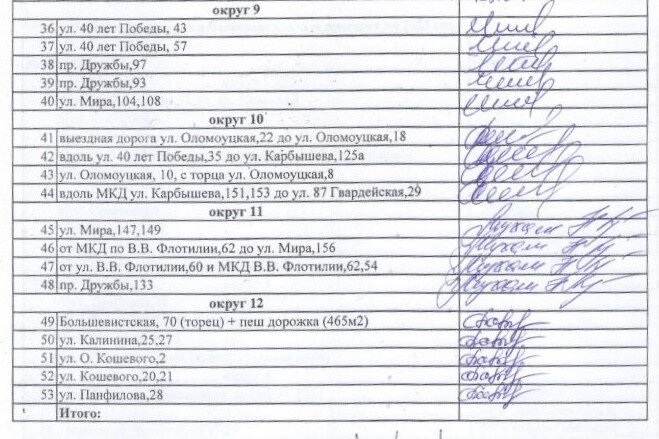 округ 9
36 ул. 40 лет Победы, 43
37 ул. 40 лет Победы, 57
38 пр. Дружбы,97
39 пр. Дружбы,93
40 ул. Мира,104,108
округ 10
41 выездная дорога ул. Оломоуцкая,22 до ул. Оломоуцкая,18
42 вдоль ул. 40 лет Победы,35 до ул. Карбышева,125а
43 ул. Оломоуцкая, 10, с торца ул. Оломоуцкая,8
44 вдоль МКД ул. Карбышева,151,153 до ул. 87 Гвардейская,29
округ 11
45 ул. Мира,147,149
46 от МКД по В.В. Флотилии,62 до ул. Мира,156
47 от ул. В.В. Флотилии,60 и МКД В.В. Флотилии,62,54
48 пр. Дружбы,133
округ 12
49 Большевистская, 70 (торец) + пеш дорожка (465м2)
50 ул. Калинина,25,27
51 ул. О. Кошевого,2
52 ул. Кошевого,20,21
53 ул. Панфилова,28
Итого: